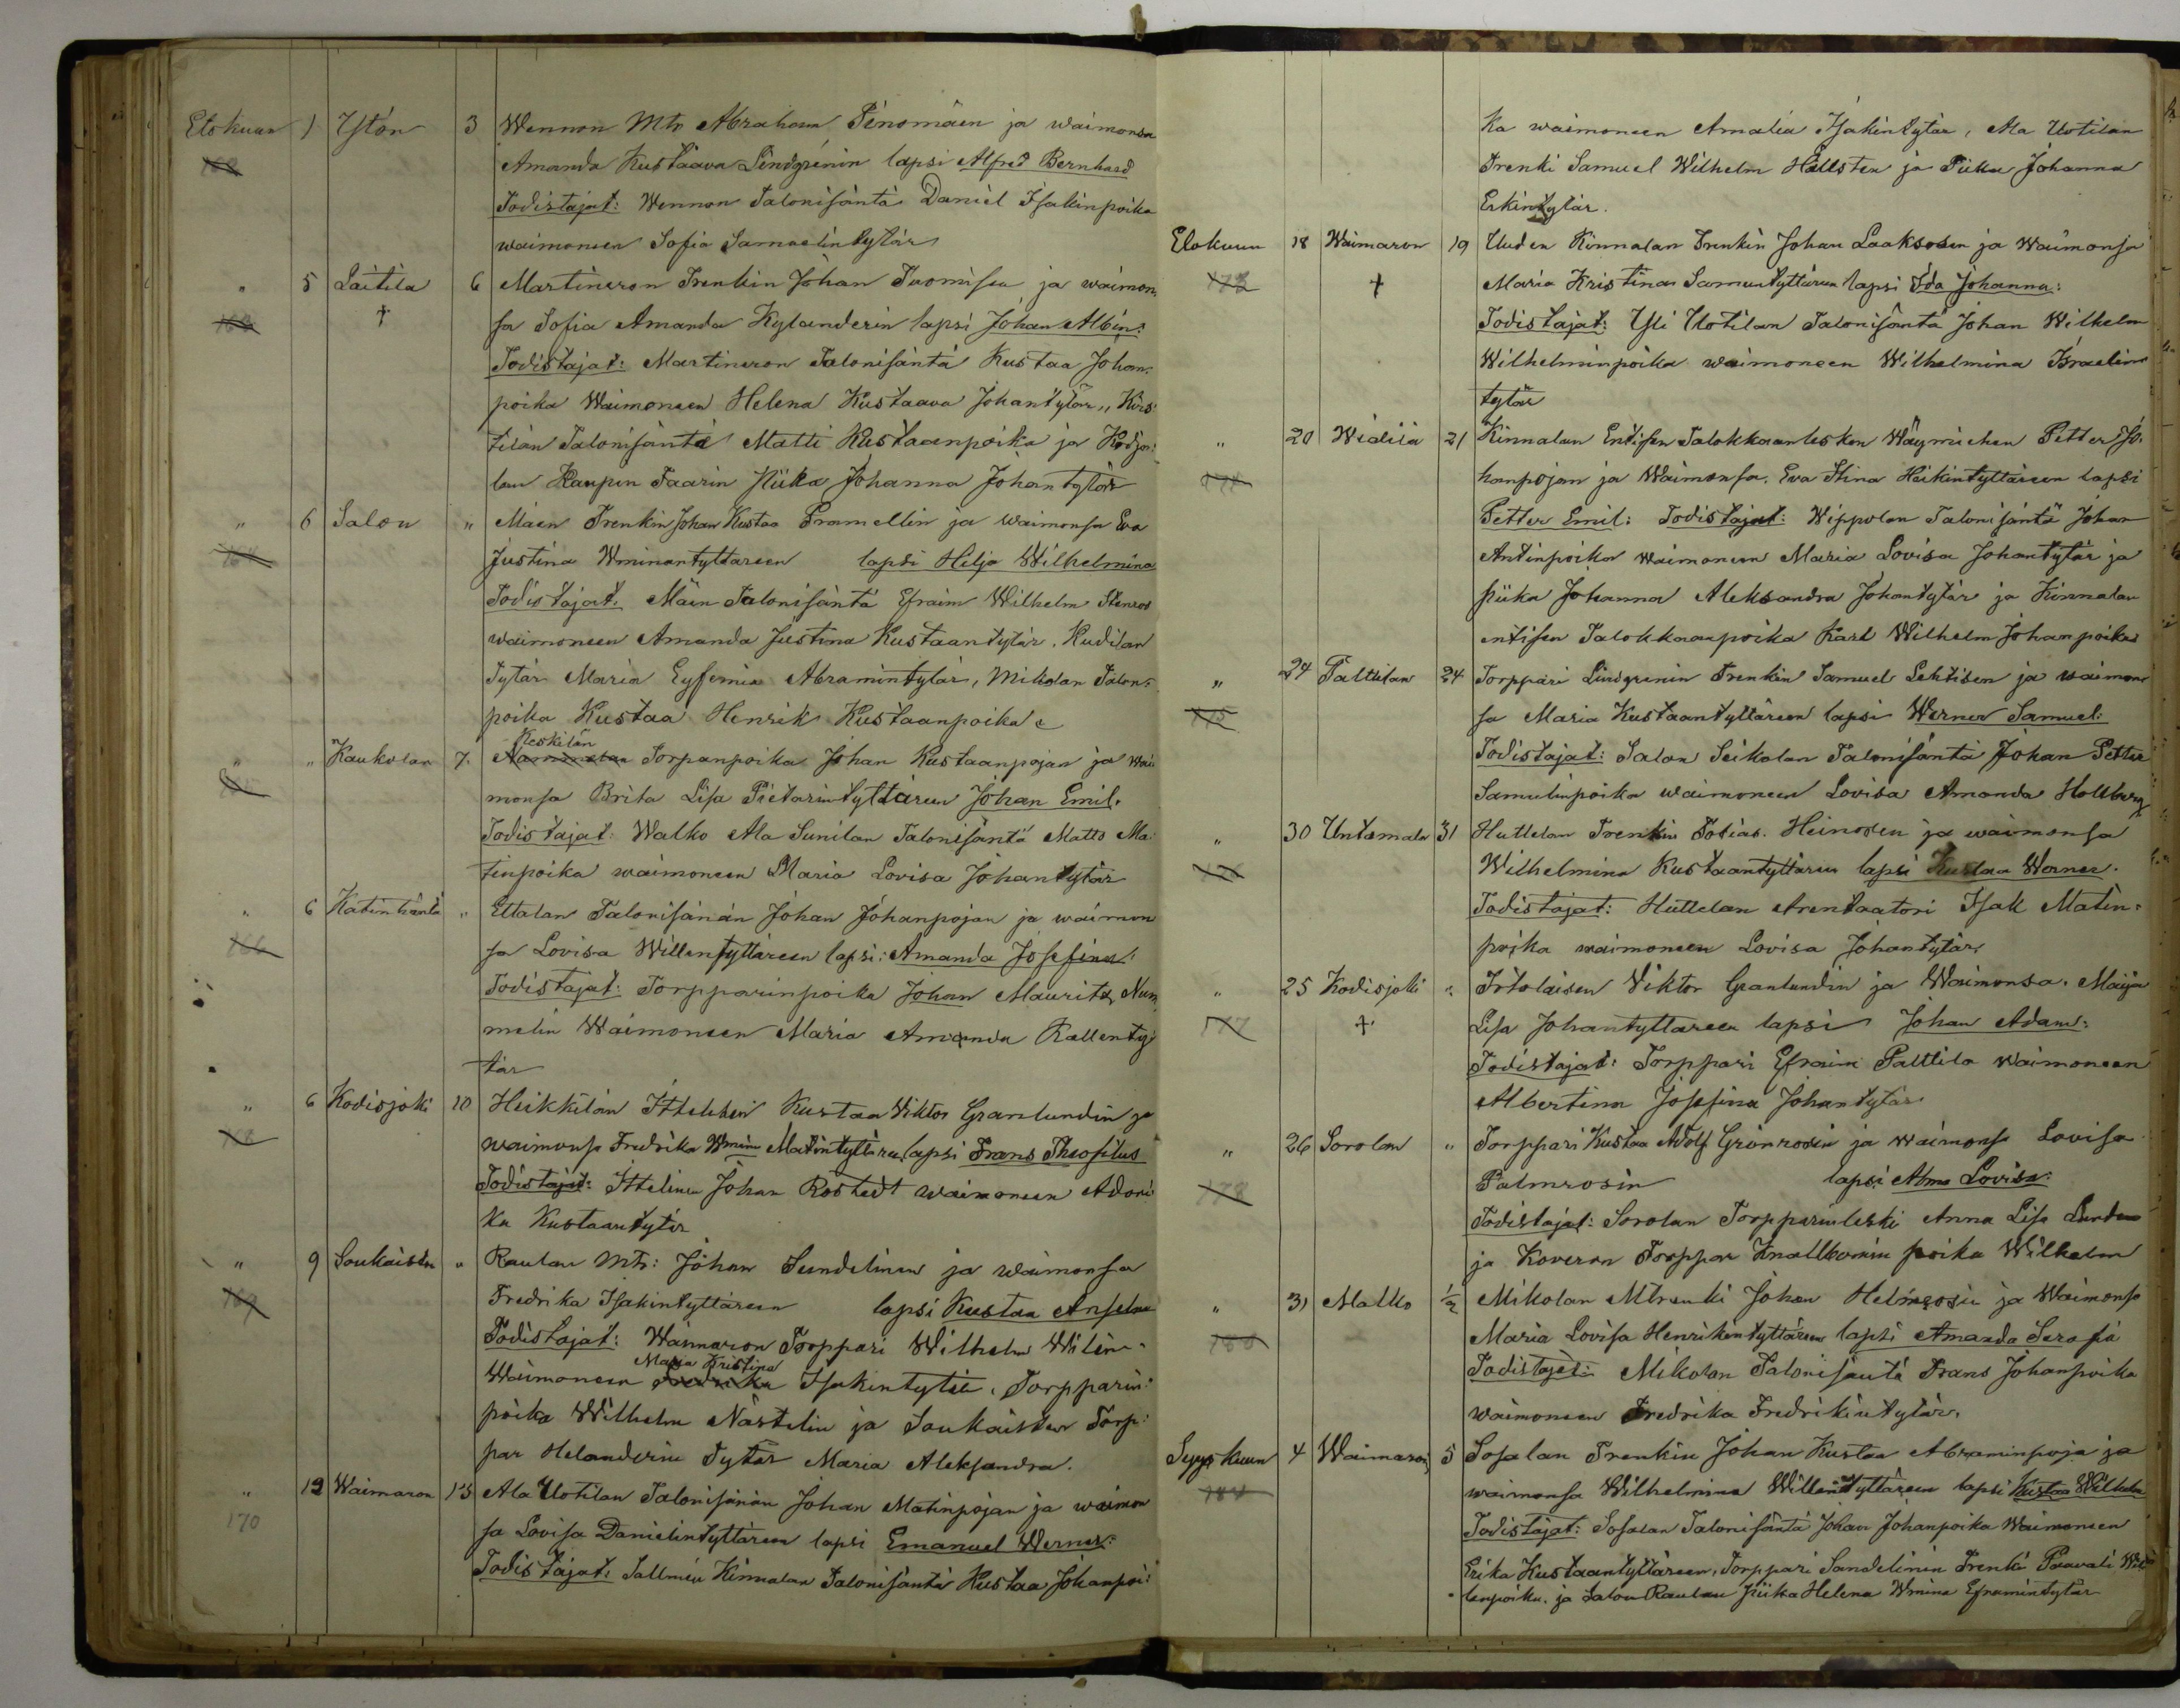 Elokuun 1 Ytön 3 Wennon Mtr Abraham Pinomäen ja waimonsa
Amanda Kustaava Lindgrénin lapsi Alfred Bernhard
Todistajat: Wennon Talonisäntä Daniel Isakinpoika
waimoneen Sofia Samuelintytär
" 5 Laitila 6 Martineron Trenkin Johan Tuomisen ja waimon
† sa Sofia Amanda Kylanderin lapsi Johan Albin:
Todistajat: Martineron Talonisäntä Kustaa Johan-
poika Waimoneen Helena Kustaava Johantytär,, Kirs-
tilän Talonisäntä Matti Kustaanpoika ja Kodjo-
lan Kaupin Taarin Piika Johanna Johantytär
" 6 Salon " Mäen Trenkin Johan Kustaa Pramellin ja waimonsa Eva
Justina Wminantyttareen lapsi Hilja Wilhelmina
Todistajat. Mäen Talonisäntä Efraim Wilhelm Stenros
waimoneen Amanda Justina Kustaantytär. Kudilan
Tytär Maria Eyfemia Abramintytär, Mikolan Talon-
poika Kustaa Henrik Kustaanpoika
" " Kaukolan 7. Keskilän Torpanpoika Johan Kustaanpojan ja wai
monsa Brita Lisa Pietarintyttäreen Johan Emil.
Todistajat: Walko Ala Sunilan Talonisäntä Matts Ma-
tinpoika waimoneen Maria Lovisa Johantytär
" 6 Katinhäntä " Ettalan Talonisänän Johan Johanpojan ja waimon
166 sa Lovisa Willentyttäreen lapsi: Amanda Josefina:
Todistajat: Torpparinpoika Johan Mauritz Num
melin Waimoneen Maria Amanda Kallenty
tär
" 6 Kodisjoki 10 Heikkilän Ittellisen Kustaa Viktor Granlundin ja
waimonsa Fredrika Wmina Matintyttären lapsi Frans Theofilus
Todistajat: Ittelinen Johan Rostedt waimoneen Adoni
ka Kustaantytär
" 9 Soukaisten " Raulan Mtr: Johan Sundelinin ja waimonsa
169 Fredrika Isakintyttäreen lapsi Kustaa Anselm
Todistajat: Waimaron Torppari Wilhelm Wilén-
Maria Kristina
Waimoneen Fredrika Isakintytär, Torpparin-
poika Wilhelm Nästelin ja Soukaisten Torp-
par Helanderin Tytär Maria Aleksandra.
" 12 Waimaron 13 Ala Uotilan Talonisänän Johan Matinpojan ja waimon
170 sa Lovisa Danielintyttäreen lapsi Emanuel Werner:
Todistajat: Sallmén Kinnalan Talonisäntä Kustaa Johanpoi-
ka waimoneen Amalia Isakintytär, Ala Uotilan
Trenki Samuel Wilhelm Hällsten ja Piika Johanna
Erkintytär.
Elokuun 18 Waimaron 19 Uuden Kinnalan Trenkin Johan Laaksosen ja Waimonsa
173 † Maria Kristina Samuntyttären lapsi Ida Johanna:
Todistajat: Yli Uotilan Talonisäntä Johan Wilhelm
Wilhelminpoika waimoneen Wilhelmina Israelin
tytär
" 20 Widilä 21 Kinnalan Entisen Talokkaan lesken Wäymiehen Petter Jo-
hanpojan ja Waimonsa. Eva Stina Heikintyttäreen lapsi
Petter Emil: Todistajat: Wippolan Talonisäntä Johan
Antinpoika waimoneen Maria Lovisa Johantytär ja
piika Johanna Aleksandra Johantytär ja Kinnalan
entisen Talokkaanpoika Karl Wilhelm Johanpoika
" 24 Palttilan 24 Torppari Lindgrenin Trenkin Samuel Lehtisen ja waimon
175 sa Maria Kustaantyttäreen lapsi Werner Samuel:
Todistajat: Salon Seikolan Talonisäntä Johan Petter
Samulinpoika waimoneen Lovisa Amanda Hollberg
" 30 Untamala 31 Huttelan Trenkin Tobias. Heinosen ja waimonsa
176 Wilhelmina Kustaantyttären lapsi Kustaa Werner.
Todistajat: Huttelan Arentaatori Isak Matin-
poika waimoneen Lovisa Johantytär
" 25 Kodisjoki " Irtolaisen Viktor Granlundin ja Waimonsa. Maija
177 † Lisa Johantyttareen lapsi Johan Adam:
Todistajat: Torppari Efraim Palttila Waimoneen
Albertina Josefina Johantytär
" 26 Sorolan " Torppari Kustaa Adolf Grönroosin ja waimonsa Lovisa
178 Palmrosin lapsi Alma Lovisa:
Todistajat: Sorolan Torpparinleski Anna Lisa Lunden
ja Koveron Torppar Knallbomin poika Wilhelm
" 31 Malko ½ Mikolan Mtrenki Johan Helmrosin ja Waimonsa
Maria Lovisa Henrikintyttären lapsi Amanda Serafia
Todistajat: Mikolan Talonisäntä Frans Johanpoika
waimoneen Fredrika Fredrikintytär.
Syyskuun 4 Waimaron 5 Sosalan Trenkin Johan Kustaa Abraminpoja ja
waimonsa Wilhelmina Willentyttäreen lapsi Kustaa Wilhelm
Todistajat: Sosalan Talonisäntä Johan Johanpoika Waimoneen
Erika Kustaantyttareen, Torppari Sandelinin Trenki Paavali Wil
lenpoika. ja Salon Raulan Piika Helena Wmina Eframintytär